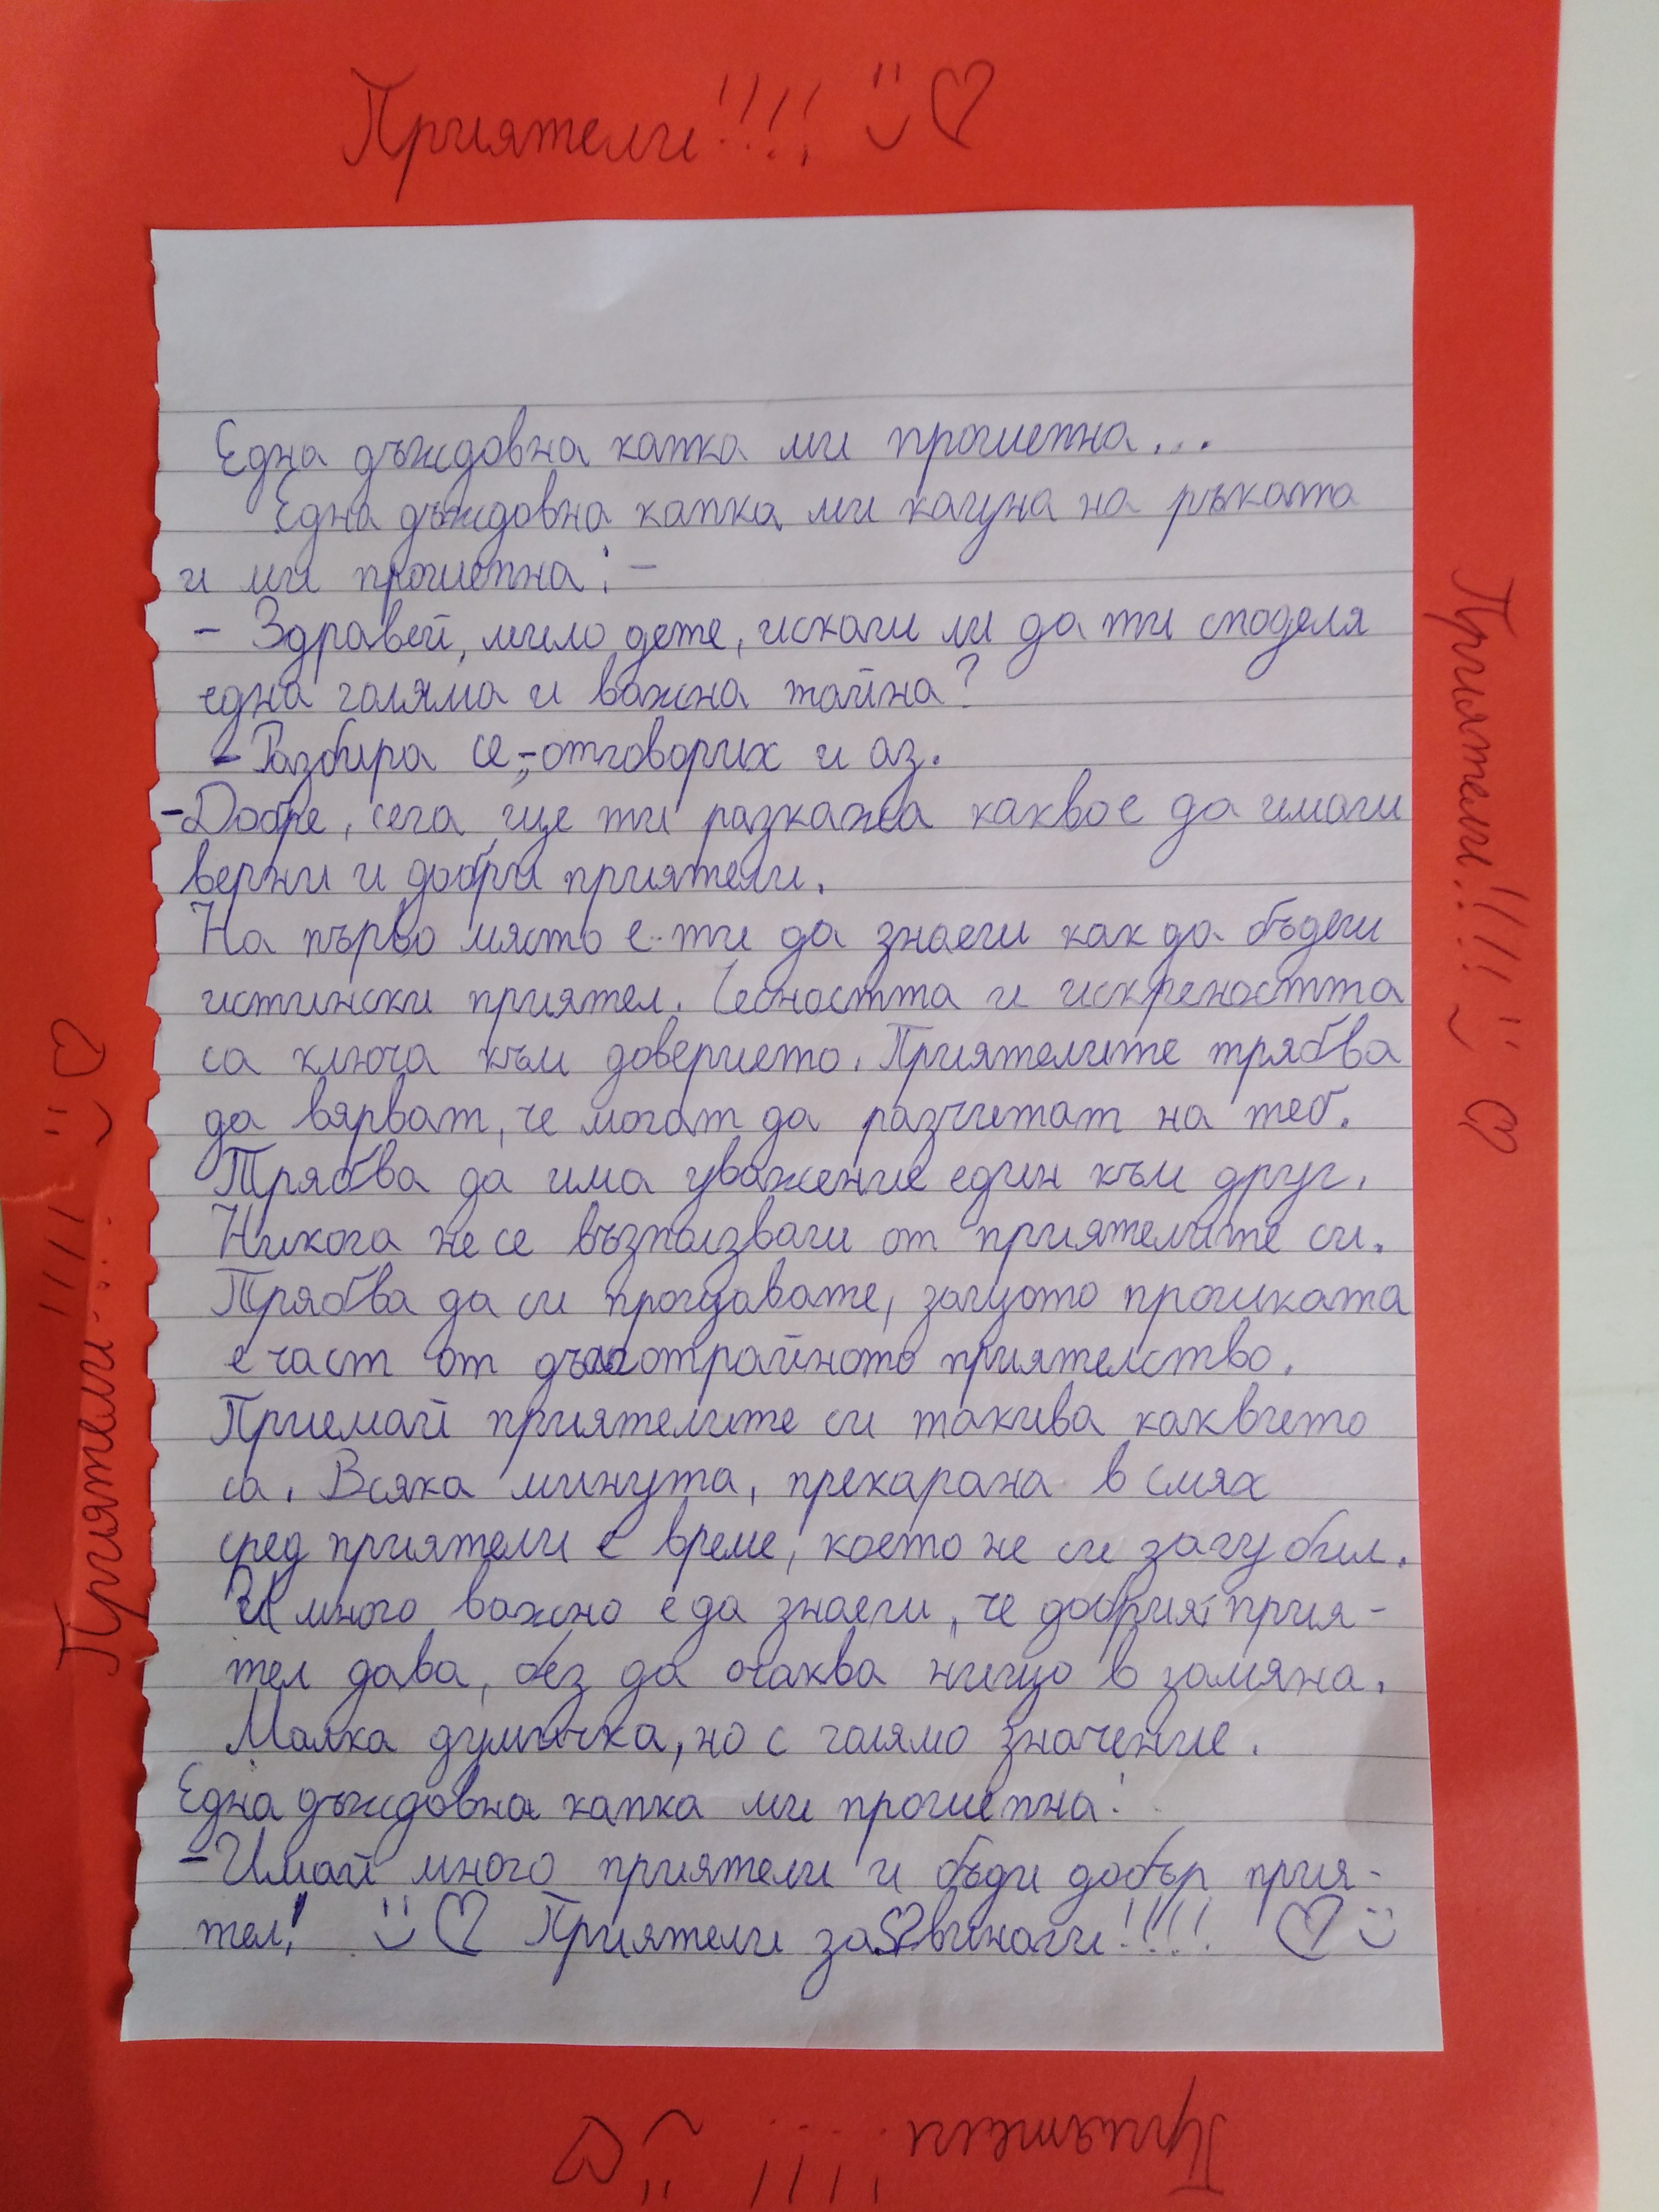 Приятели!!!!
Една дъждовна капка ми прошепна...
Една дъждовна капка ми кацна на ръката
и ми прошепна: -
- Здравей, мило дете, искаш ли да ти споделя
една голяма и важна тайна?
- Разбира се,-отговорих и аз.
-Добре, сега ще ти разкажа какво е да имаш
верни и добри приятели.
На първо място е ти да знаеш как да бъдеш
истински приятел. Чесността и искреността
са ключа към доверието. Приятелите трябва
да вярват, че могат да разчитат на теб.
Трябва да има уважение един към друг.
Никога не се възползваш от приятелите си.
Трябва да си прощавате, защото прошката
е част от дъготрайното приятелство.
Приемай приятелите си такива каквито
са. Всяка минута, прекарана в смях
сред приятели е време, което не си загубил.
И много важно е да знаеш, че добрият прия-
тел дава, без да очаква нищо в замяна.
Малка думичка, но с голямо значение.
Една дъждовна капка ми прошепна:
-Имай много приятели и бъди добър прия-
тел! Приятели завинаги!!!!
Приятели!!!!
Приятели!!!!
Приятели!!!!